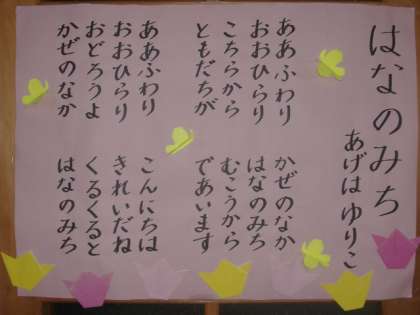 はなのみち
あげはゆりこ
ああふわり　かぜのなか
おおひらり　はなのみち
こちらから　むこうから
ともだちが　であいます
ああふわり　こんにちは
おおひらり　きれいだね
おどろうよ　くるくると
かぜのなか　はなのみち